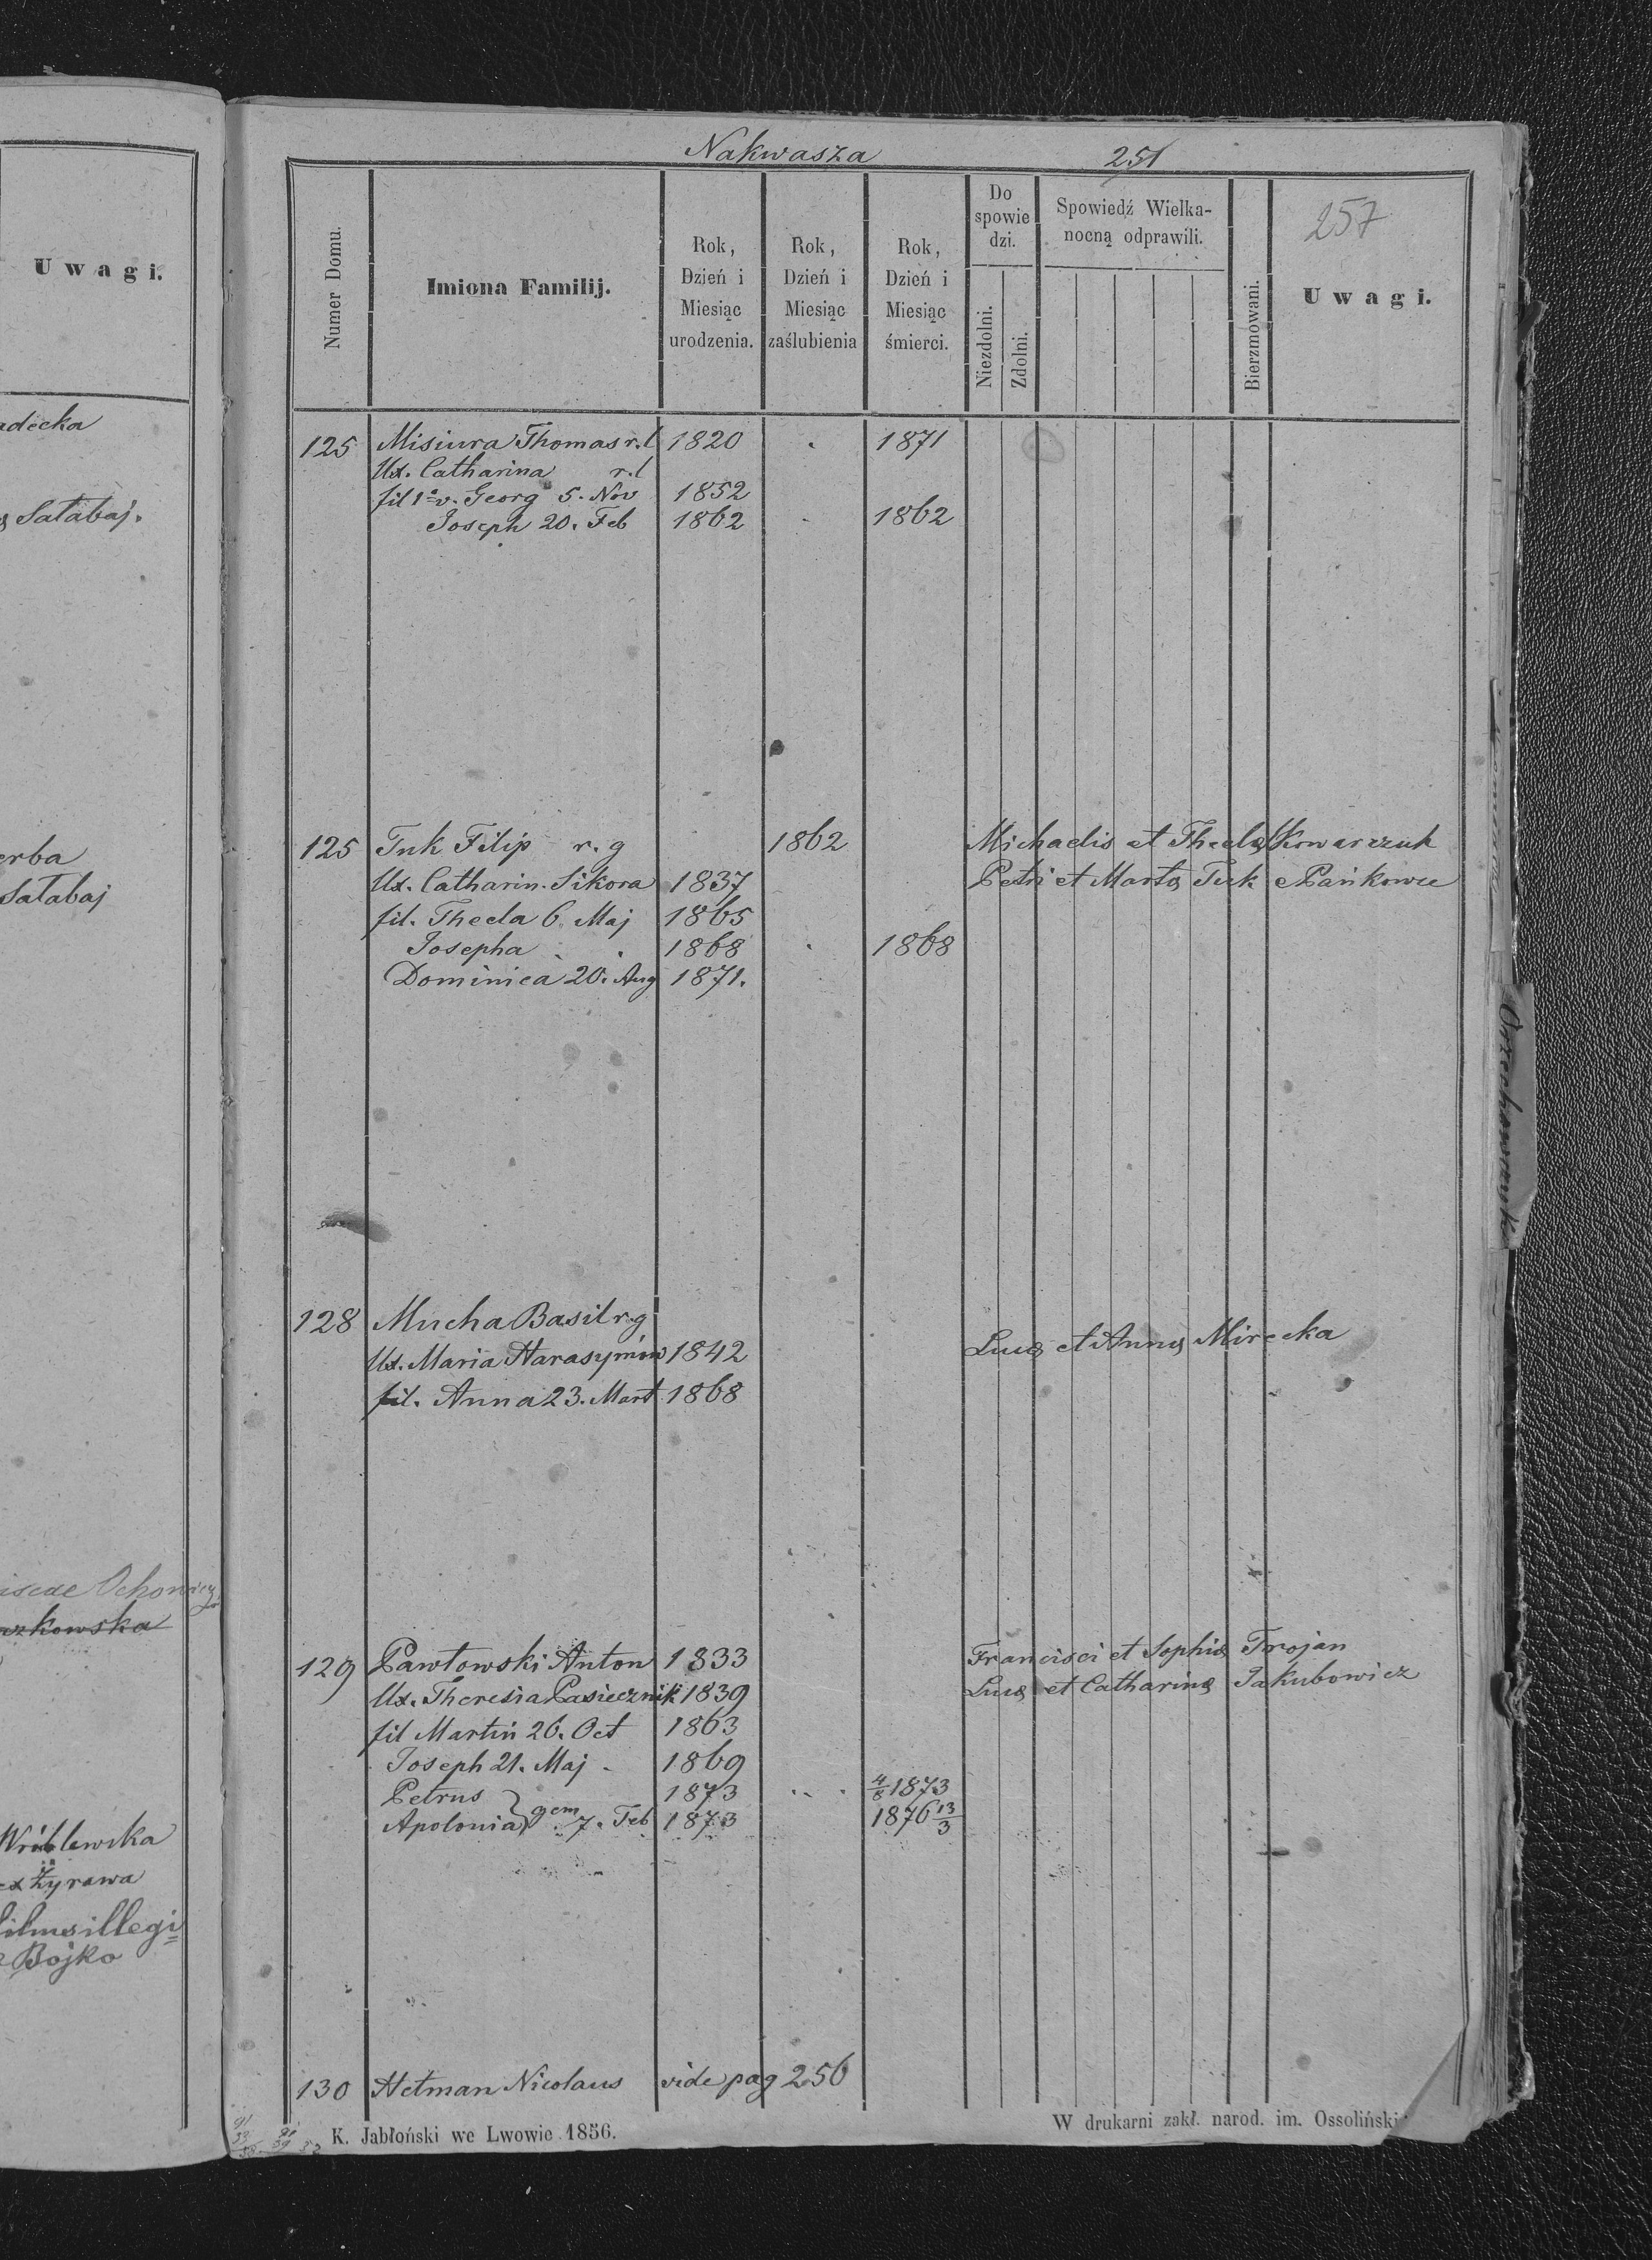 Uwagi.
Satabaj.
erba
Satabaj
Wróblewska
Żyrawa
Bojko
Nakwasza 251
257
Numer Domu.
Imiona Familij.
Rok, Dzień i Miesiąc urodzenia.
Rok, Dzień i Miesiąc zaślubienia
Rok, Dzień i Miesiąc śmierci.
Do spowiedzi.
Niezdolni.
Zdolni.
Spowiedź Wielkanocną odprawili.
Bierzmowani.
Uwagi.
125 Misiura Thomas r.l 1820 . 1871
Ux. Catharina r.l
fil 1º v. Georg 5. Nov 1852
Joseph 20. Feb 1862 . 1862
125 Tuk Filip r.g 1862 Michaelis et Theclæ Kowarzuk
Ux. Catharin. Sikora 1837 Petri et Martæ Tuk e Pańkowce
fil. Thecla 6. Maj 1865
Josepha . . 1868 . 1868
Dominica 20. Aug 1871.
128 Mucha Basil r.g
Ux. Maria Harasymów 1842 Lucæ et Annæ Mirecka
fil. Anna 23. Mart 1868
129 Pawłowski Anton 1833 Francisci et Sophiæ Trojan
Ux. Theresia Pasiecznik 1839 Lucæ et Catharinæ Jakubowicz
fil Martin 26. Oct 1863
Joseph 21. Maj 1869
Petrus 1873 4/8 1873
Apolonia } gem 7. Feb 1873 1876 13/3
130 Hetman Nicolaus vide pag 256
K. Jabłoński we Lwowie 1856.
W drukarni zakł. narod. im. Ossoliński